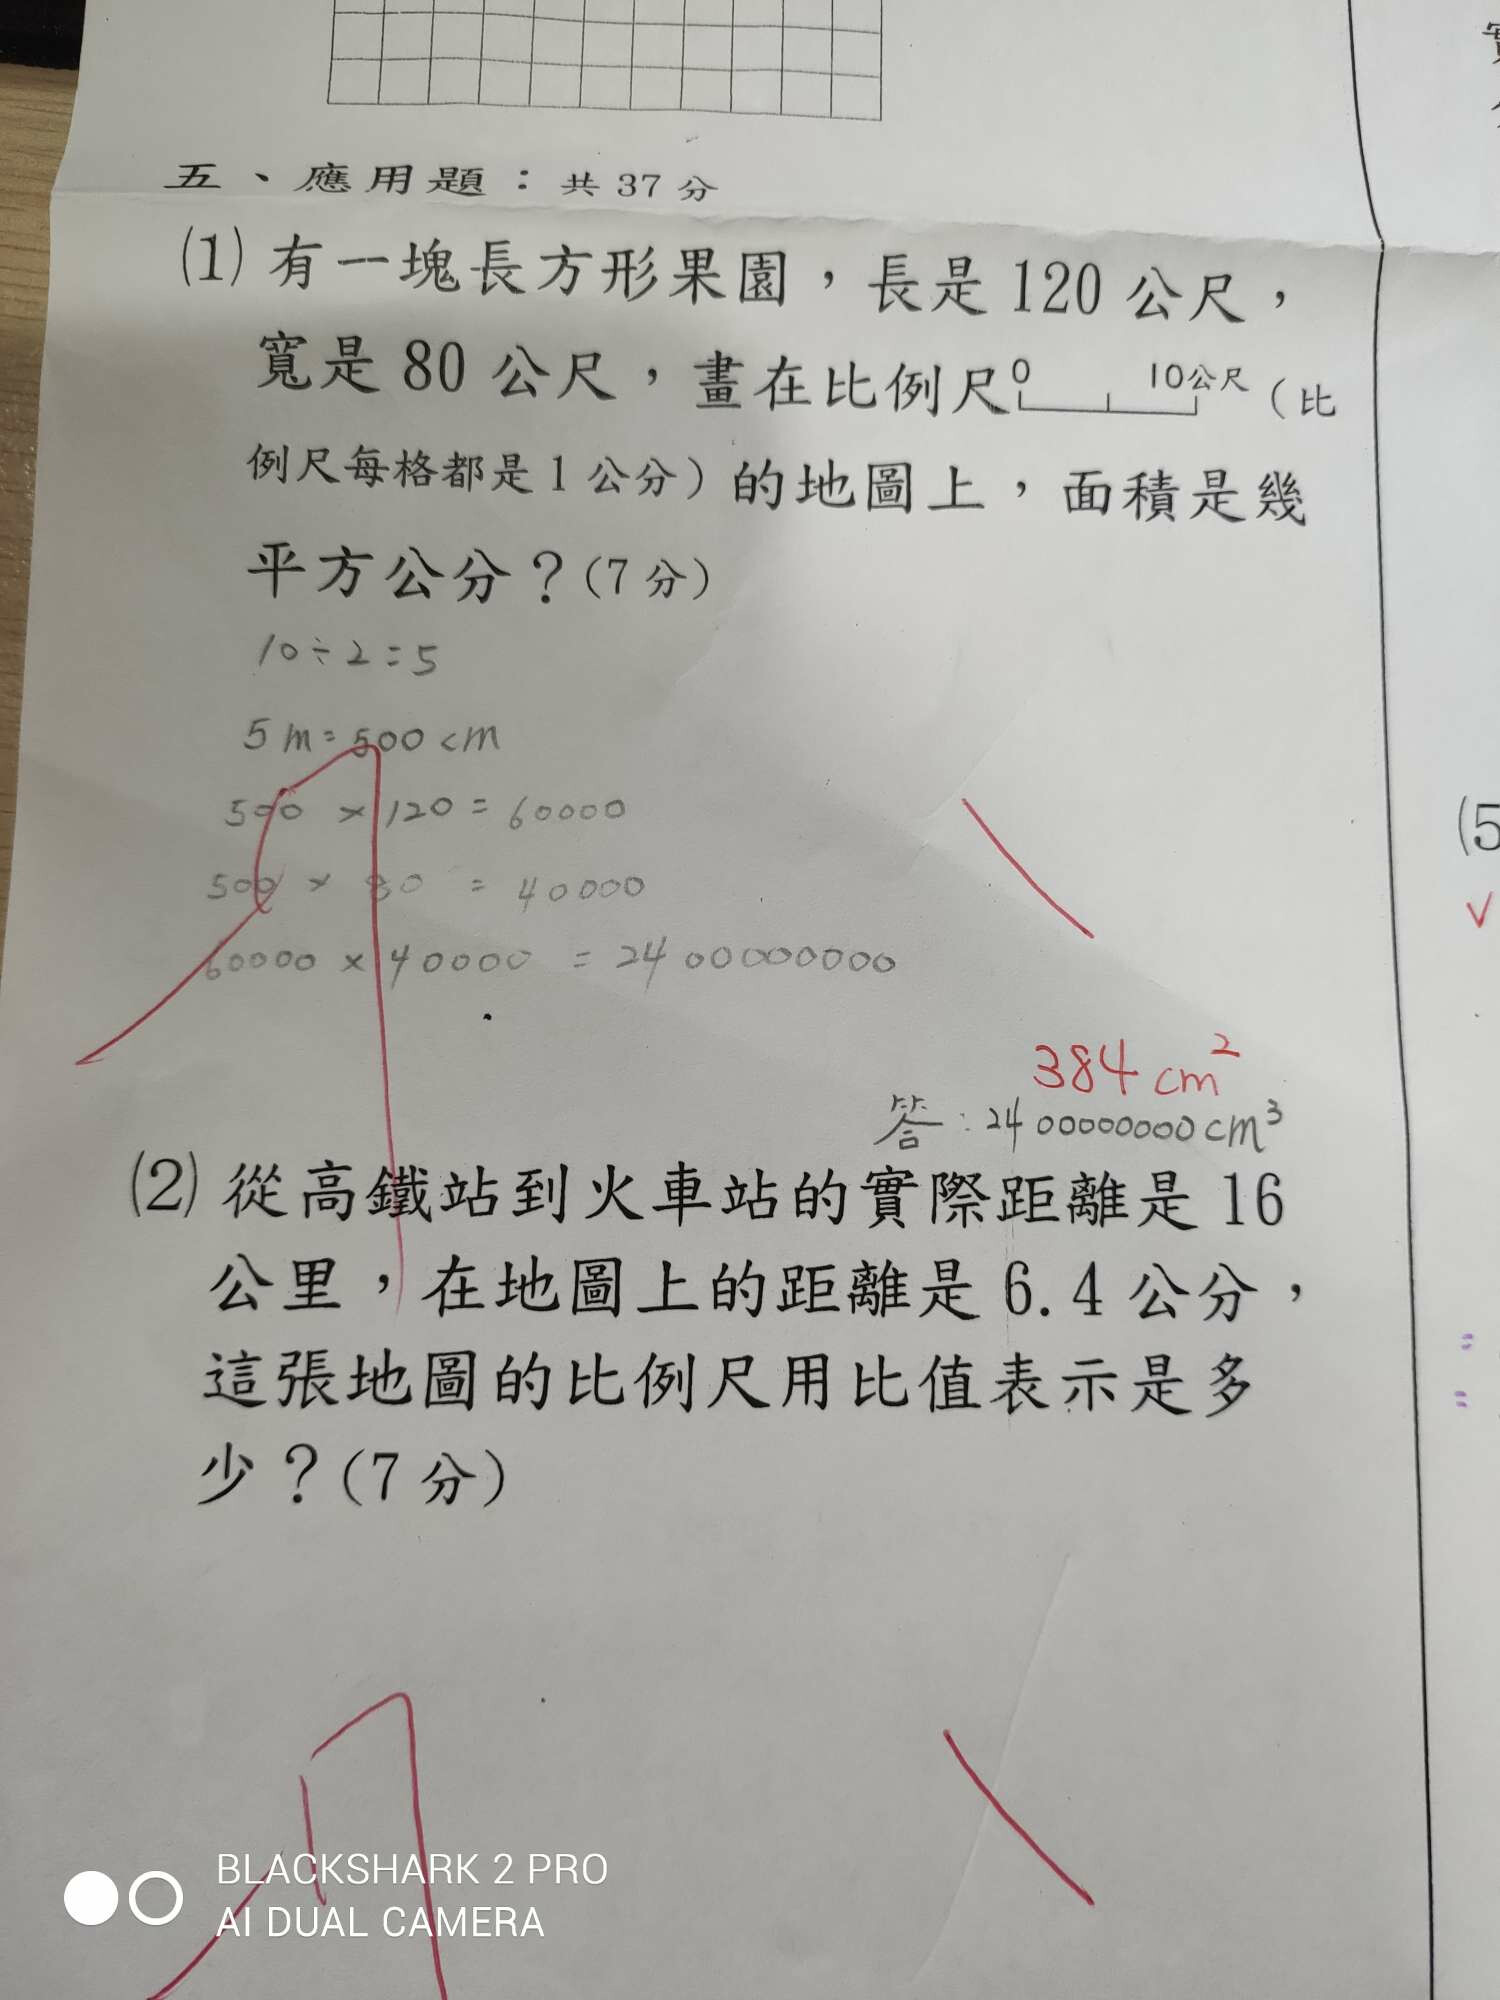 五、應用題：共37分
(1)有一塊長方形果園，長是120公尺，
寬是80公尺，畫在比例尺 0 10公尺（比
例尺每格都是1公分）的地圖上，面積是幾
平方公分？(7分)
10÷2=5
5m=500cm
500×120=60000
500×80=40000
60000×40000=2400000000
384cm²
答:2400000000cm³
(2)從高鐵站到火車站的實際距離是16
公里，在地圖上的距離是6.4公分，
這張地圖的比例尺用比值表示是多
少？(7分)
(5
BLACKSHARK 2 PRO
AI DUAL CAMERA